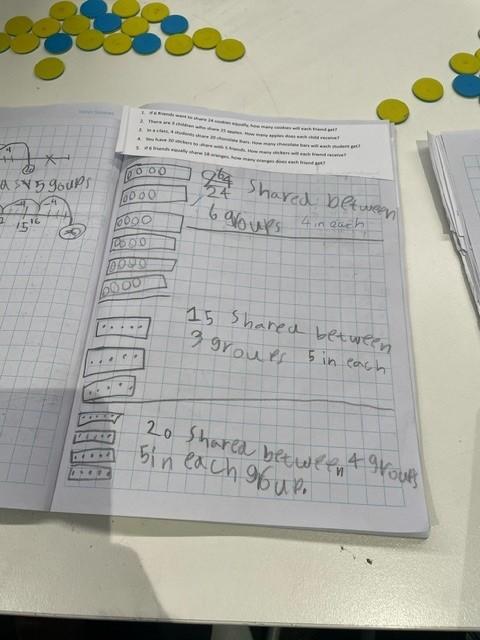 1. If 6 friends want to share 24 cookies equally, how many cookies will each friend get?
2. There are 3 children who share 15 apples. How many apples does each child receive?
3. In a class, 4 students share 20 chocolate bars. How many chocolate bars will each student get?
4. You have 30 stickers to share with 5 friends. How many stickers will each friend receive?
5. If 6 friends equally share 18 oranges, how many oranges does each friend get?
5 groups
15 16
24 Shared between
6 groups 4 in each
15 Shared between
3 groups 5 in each
20 Shared between 4 groups
5 in each group.